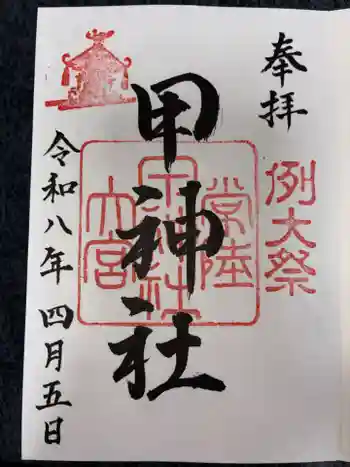 奉拝
例大祭
甲神社
常陸
甲神社
大宮
令和八年 四月五日